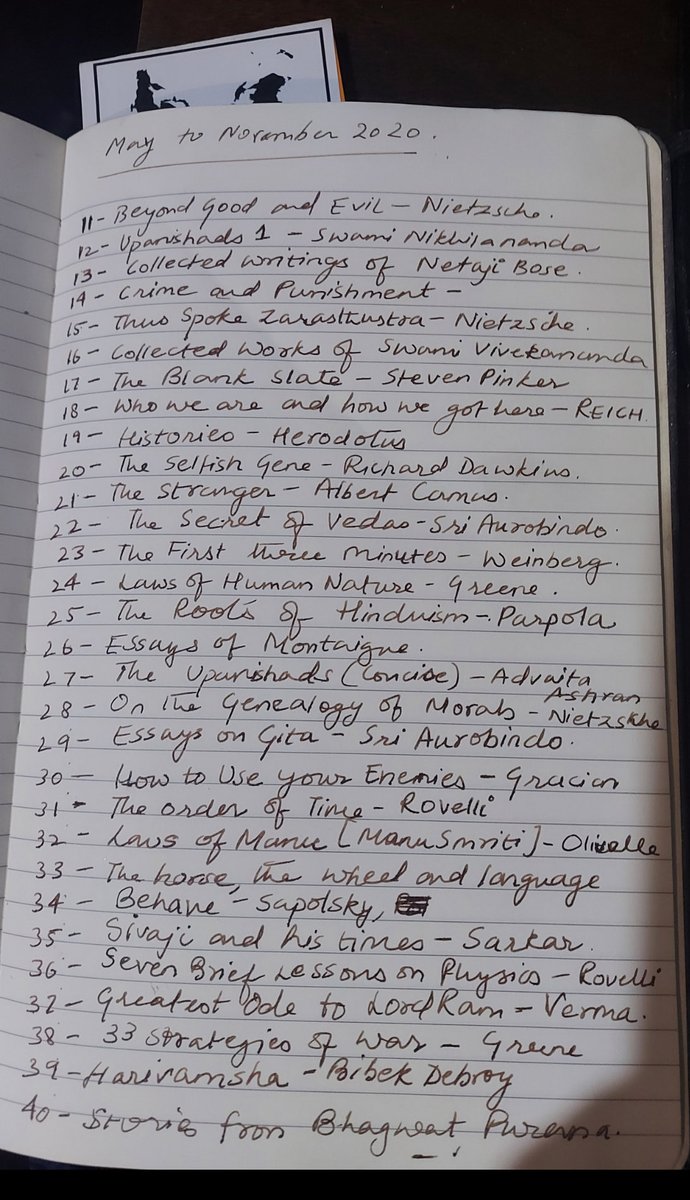 May to November 2020.
11- Beyond Good and Evil - Nietzsche.
12- Upanishads 1 - Swami Nikhilananda
13- Collected writings of Netaji Bose.
14- Crime and Punishment -
15- Thus Spoke Zarasthustra - Nietzsche.
16- Collected Works of Swami Vivekananda
17- The Blank Slate - Steven Pinker
18- Who we are and how we got here - REICH.
19- Histories - Herodotus
20- The Selfish Gene - Richard Dawkins.
21- The Stranger - Albert Camus.
22- The Secret of Vedas - Sri Aurobindo.
23- The First three minutes - Weinberg.
24- Laws of Human Nature - Greene.
25- The Roots of Hinduism - Parpola
26- Essays of Montaigne.
27- The Upanishads (Concise) - Advaita
Ashram
28- On the Genealogy of Morals - Nietzskhe
29- Essays on Gita - Sri Aurobindo.
30- How to Use your Enemies - Gracian
31- The order of Time - Rovelli
32- Laws of Manu [ManuSmriti] - Olivelle
33- The horse, the wheel and language
34- Behave - Sapolsky,
35- Sivaji and his times - Sarkar.
36- Seven Brief Lessons on Physics - Rovelli
37- Greatest Ode to Lord Ram - Verma.
38- 33 Strategies of War - Greene
39- Harivamsha - Bibek Debroy
40- Stories from Bhagwat Purana.